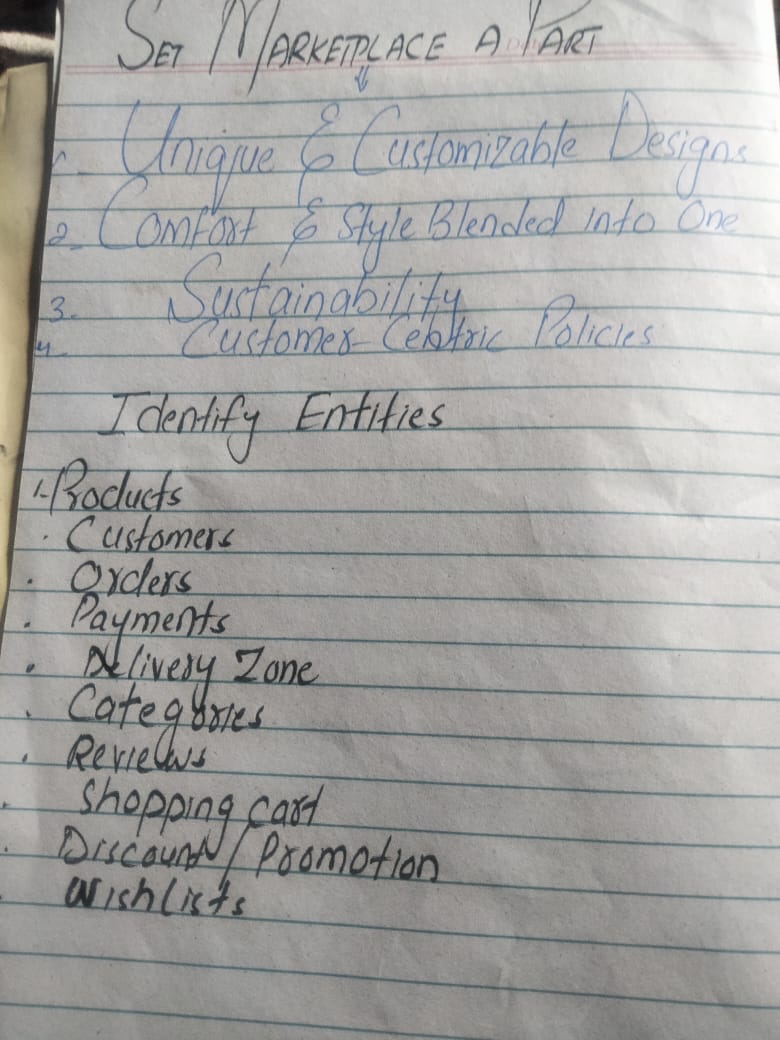 SET MARKETPLACE A PART
1- Unique & Customizable Designs
2- Comfort & Style Blended into One
3- Sustainability
4- Customer-Centric Policies
Identify Entities
1- Products
· Customers
· Orders
· Payments
· Delivery Zone
· Categories
· Reviews
· Shopping cart
· Discount / Promotion
· Wishlists